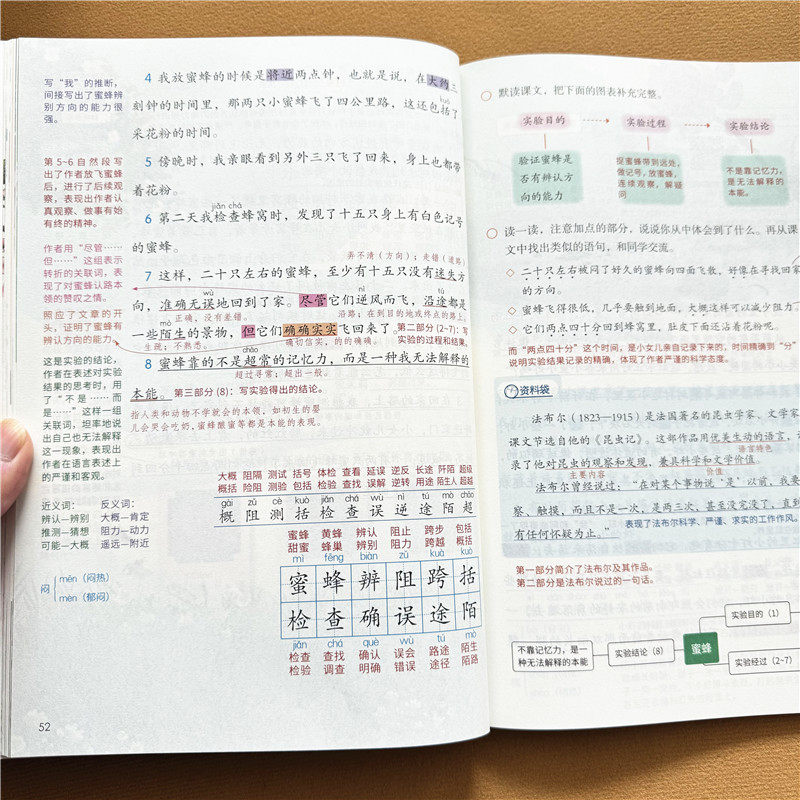 写“我”的推断,
间接写出了蜜蜂辨
别方向的能力很
强。
第5-6自然段写
出了作者放飞蜜蜂
后,进行了后续观
察,表现出作者认
真观察、做事有始
有终的精神。
作者用“尽管……
但……”这组表示
转折的关联词,表
现了对蜜蜂认路本
领的赞叹之情。
照应了文章的开
头,证明了蜜蜂有
辨认方向的能力。
这是实验的结论,
作者在表述对实验
结果的思考时,用
了“不是……而
是……”这样一组
关联词,坦率地说
出自己也无法解释
这一现象,表现出
作者在语言表述上
的严谨和客观。
近义词: 反义词:
辨认—辨别 大概—肯定
推测—猜想 阻力—动力
可能—大概 遥远—附近
闷 mēn(闷热)
mèn(郁闷)
4 我放蜜蜂的时候是将近两点钟,也就是说,在大约三
kuò
刻钟的时间里,那两只小蜜蜂飞了四公里路,这还包括了
采花粉的时间。
5 傍晚时,我亲眼看到另外三只飞了回来,身上也都带
着花粉。
jiǎn chá
6 第二天我检查蜂窝时,发现了十五只身上有白色记号
的蜜蜂。
弄不清(方向);走错(道路)
7 这样,二十只左右的蜜蜂,至少有十五只没有迷失方
wù tú
向,准确无误地回到了家。尽管它们逆风而飞,沿途都是
正确,没有差错。 沿路;在到目的地或终点的路上。
mò
一些陌生的景物,但它们确确实实飞回来了。第二部分(2~7):写
生疏;不熟悉。 确切信实,的的确确。 实验的过程和结果。
chāo
8 蜜蜂靠的不是超常的记忆力,而是一种我无法解释的
超过寻常;超出一般。
本能。第三部分(8):写实验得出的结论。
指人类和动物不学就会的本领,如初生的婴
儿会哭会吃奶,蜜蜂酿蜜等都是本能的表现。
大概 阻隔 测试 括号 体检 查看 延误 逆反 长途 阡陌 超越
概括 险阻 测验 包括 检验 查找 误解 逆转 用途 陌生人 超越
gài zǔ cè kuò jiǎn chá wù nì tú mò chāo
概 阻 测 括 检 查 误 逆 途 陌 超
蜜蜂 黄蜂 辨认 阻止 跨步 包括
甜蜜 蜂巢 辨别 阻力 跨越 概括
mì fēng biàn zǔ kuà kuò
蜜 蜂 辨 阻 跨 括
检 查 确 误 途 陌
jiǎn chá què wù tú mò
检查 查找 确认 误会 路途 陌生
检验 调查 明确 错误 途径 陌路
52
默读课文,把下面的图表补充完整。
实验目的 实验过程 实验结论
验证蜜蜂是
否有辨认方
向的能力
捉蜜蜂带到远处,
做记号,放蜜蜂,
连续观察,解疑
问
不是靠记忆力,
是无法解释的
本能。
读一读,注意加点的部分,说说你从中体会到了什么。再从课
文中找出类似的语句,和同学交流。
◇ 二十只左右被闷了好久的蜜蜂向四面飞散,好像在寻找回家
的方向。
◇ 蜜蜂飞得很低,几乎要触到地面,大概这样可以减少阻力。
◇ 它们两点四十分回到蜂窝里,肚皮下面还沾着花粉呢。
而“两点四十分”这个时间,是小女儿亲自记录下来的,时间精确到“分”
说明实验结果记录的精确,体现了作者严谨的科学态度。
资料袋
法布尔(1823—1915)是法国著名的昆虫学家、文学家
课文节选自他的《昆虫记》。这部作品用优美生动的语言,记
语言特色
录了他对昆虫的观察和发现,兼具科学和文学价值。
主要内容 价值
法布尔曾经说过:“在对某个事物说‘是’以前,我要
察、触摸,而且不是一次,是两三次,甚至没完没了,直到
有任何怀疑为止。”表现了法布尔科学、严谨、求实的工作作风。
第一部分简介了法布尔及其作品。
第二部分是法布尔说过的一句话。
实验目的(1)
不靠记忆力,是一
种无法解释的本能
实验结论(8)
蜜蜂
实验经过(2~7)